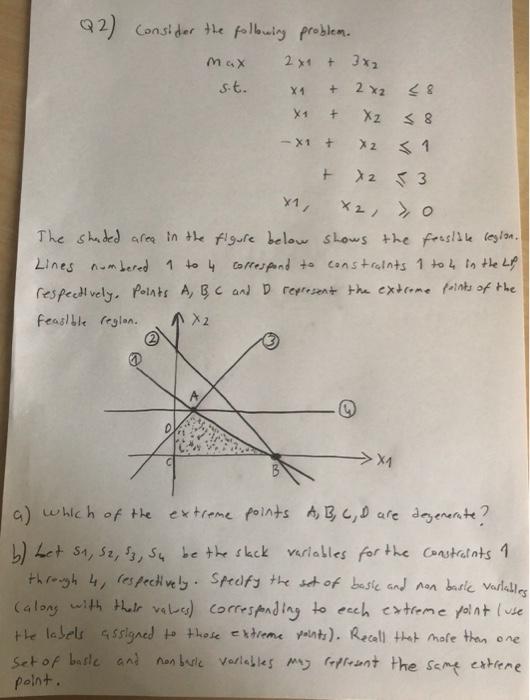 Q2) Consider the following problem.
max 2x1 + 3x2
s.t. x1 + 2x2 ≤ 8
x1 + x2 ≤ 8
-x1 + x2 ≤ 1
+ x2 ≤ 3
x1, x2, ≥ 0
The shaded area in the figure below shows the feasible region.
Lines numbered 1 to 4 correspond to constraints 1 to 4 in the LP
respectively. Points A, B, C and D represent the extreme points of the
feasible region. x2
② ③
①
A
④
D
C B x1
a) which of the extreme points A, B, C, D are degenerate?
b) Let s1, s2, s3, s4 be the slack variables for the constraints 1
through 4, respectively. Specify the set of basic and non basic variables
(along with their values) corresponding to each extreme point (use
the labels assigned to those extreme points). Recall that more than one
set of basic and nonbasic variables may represent the same extreme
point.